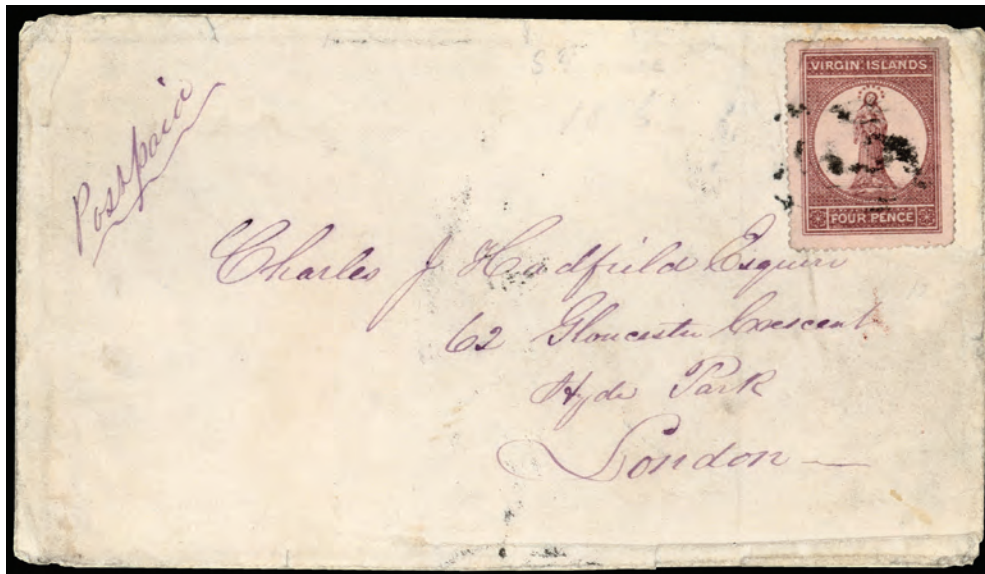 VIRGIN ISLANDS
FOUR PENCE
Postpaid
Charles J Hadfield Esquire
62 Gloucester Crescent
Hyde Park
London